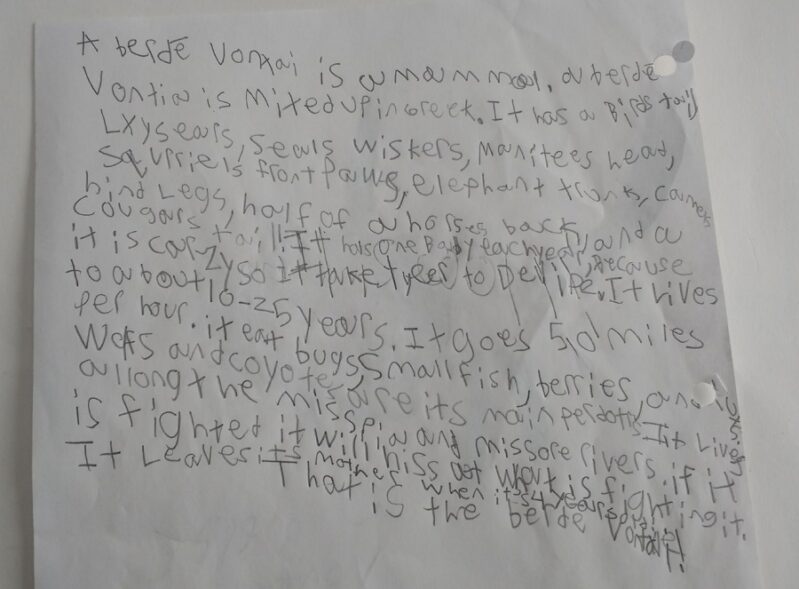 A berde Vontai is a mammal. a berde
Vontia is mixed up in creek. It has a Birds tail
Lxys ears, seals wiskers, manitees head,
squrriels front paws, elephant trunk, camels
hind Legs, half of a horses back, and a
cougars tail. It has one Baby each year,
it is car-zy so It take tyeer to Devilipe, Because
to about 10-25 years. It goes 5,0 miles
per hour. it eat bugs, small fish, berries, and
Wofs and coyotes are its main perdotrs. It Lives
allong the missispi and missore rivers. if it
is fighted it will hiss at what is fighting it.
It Leaves its mother when its 4 years old.
That is the berde Vontai!